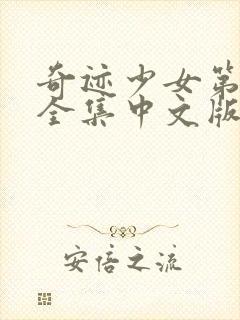 奇迹少女第
全集中文版
安倍之流